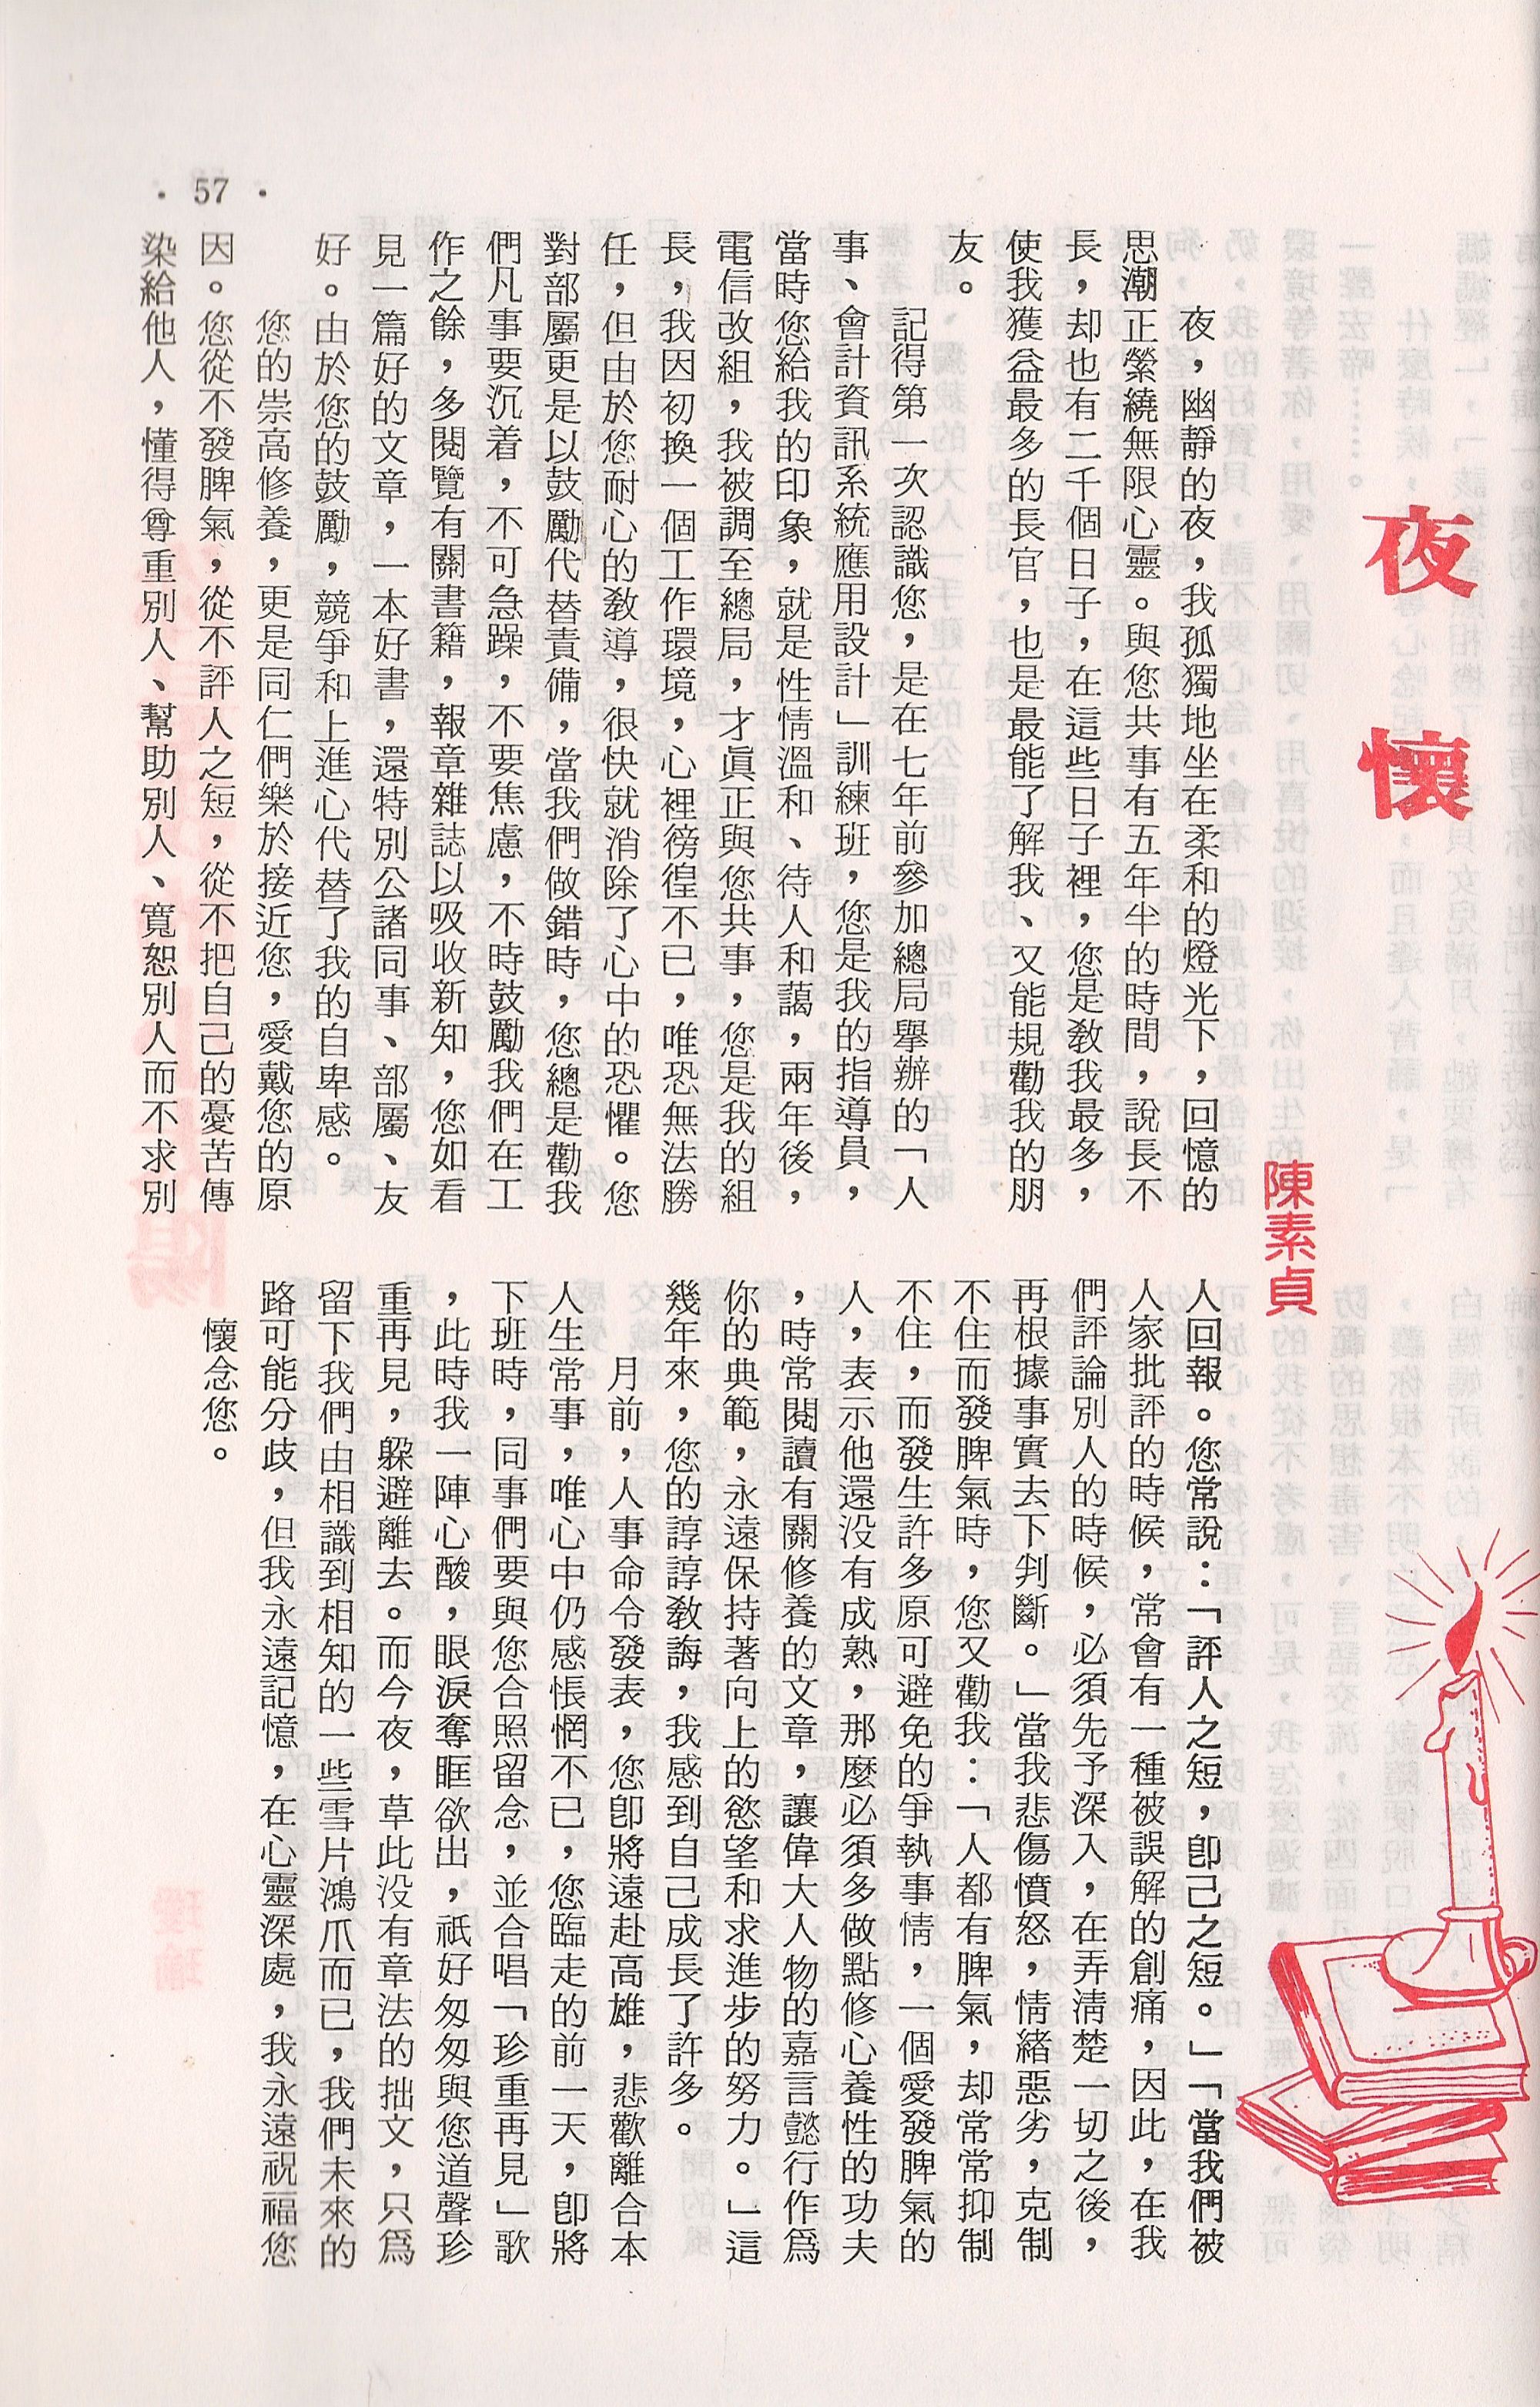 夜懷
陳素貞
夜，幽靜的夜，我孤獨地坐在柔和的燈光下，回憶的
思潮正縈繞無限心靈。與您共事有五年半的時間，說長不
長，却也有二千個日子，在這些日子裡，您是敎我最多，
使我獲益最多的長官，也是最能了解我、又能規勸我的朋
友。
記得第一次認識您，是在七年前參加總局舉辦的「人
事、會計資訊系統應用設計」訓練班，您是我的指導員，
當時您給我的印象，就是性情溫和、待人和藹，兩年後，
電信改組，我被調至總局，才眞正與您共事，您是我的組
長，我因初換一個工作環境，心裡徬徨不已，唯恐無法勝
任，但由於您耐心的敎導，很快就消除了心中的恐懼。您
對部屬更是以鼓勵代替責備，當我們做錯時，您總是勸我
們凡事要沉着，不可急躁，不要焦慮，不時鼓勵我們在工
作之餘，多閱覽有關書籍，報章雜誌以吸收新知，您如看
見一篇好的文章，一本好書，還特別公諸同事、部屬、友
好。由於您的鼓勵，競爭和上進心代替了我的自卑感。
您的崇高修養，更是同仁們樂於接近您，愛戴您的原
因。您從不發脾氣，從不評人之短，從不把自己的憂苦傳
染給他人，懂得尊重別人、幫助別人、寬恕別人而不求別
人回報。您常說：「評人之短，卽己之短。」「當我們被
人家批評的時候，常會有一種被誤解的創痛，因此，在我
們評論別人的時候，必須先予深入，在弄淸楚一切之後，
再根據事實去下判斷。」當我悲傷憤怒，情緒惡劣，克制
不住而發脾氣時，您又勸我：「人都有脾氣，却常常抑制
不住，而發生許多原可避免的爭執事情，一個愛發脾氣的
人，表示他還没有成熟，那麼必須多做點修心養性的功夫
，時常閱讀有關修養的文章，讓偉大人物的嘉言懿行作爲
你的典範，永遠保持著向上的慾望和求進步的努力。」這
幾年來，您的諄諄敎誨，我感到自己成長了許多。
月前，人事命令發表，您卽將遠赴高雄，悲歡離合本
人生常事，唯心中仍感悵惘不已，您臨走的前一天，卽將
下班時，同事們要與您合照留念，並合唱「珍重再見」歌
，此時我一陣心酸，眼淚奪眶欲出，祇好匆匆與您道聲珍
重再見，躱避離去。而今夜，草此没有章法的拙文，只爲
留下我們由相識到相知的一些雪片鴻爪而已，我們未來的
路可能分歧，但我永遠記憶，在心靈深處，我永遠祝福您
懷念您。
• 57 •